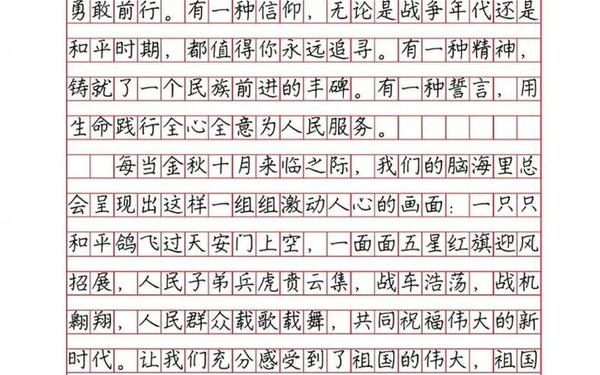 勇敢前行。有一种信仰，无论是战争年代还是
和平时期，都值得你永远追寻。有一种精神，
铸就了一个民族前进的丰碑。有一种誓言，用
生命践行全心全意为人民服务。
每当金秋十月来临之际，我们的脑海里总
会呈现出这样一组组激动人心的画面：一只只
和平鸽飞过天安门上空，一面面五星红旗迎风
招展，人民子弟兵虎贲云集，战车浩荡，战机
翱翔，人民群众载歌载舞，共同祝福伟大的新
时代。让我们充分感受到了祖国的伟大，祖国